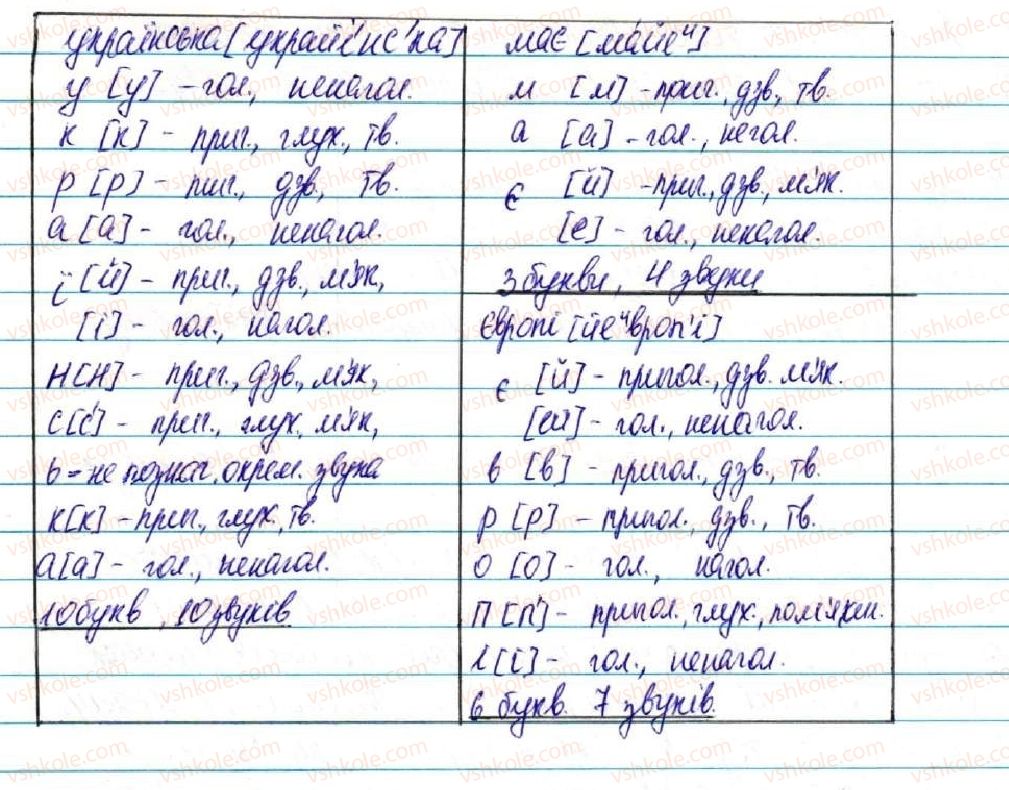 українська [украйі′нс′ка]
у [у] – гол., ненагол.
к [к] – приг., глух., тв.
р [р] – пиг., дзв., тв.
а [а] – гол., ненагол.
ї [й] – приг., дзв., м'як,
[і] – гол., нагол.
н [н] – приг., дзв., м'як,
с [с′] – приг., глух, м'як,
ь = не познач. окрем. звука
к [к] – приг., глух., тв.
а [а] – гол., ненагол.
10 букв, 10 звуків
має [ма́йеи]
м [м] – приг., дзв., тв.
а [а] – гол., нагол.
є [й] – приг., дзв., м'як.
[е] – гол., ненагол.
3 букви, 4 звуки
Європі [йеивроп'і]
є [й] – пригол., дзв. м'як.
[еи] – гол., ненагол.
в [в] – пригол., дзв., тв.
р [р] – пригол., дзв., тв.
о [о] – гол., нагол.
п [п'] – пригол., глух., пом'якш.
і [і] – гол., ненагол.
6 букв. 7 звуків.
vshkole.com